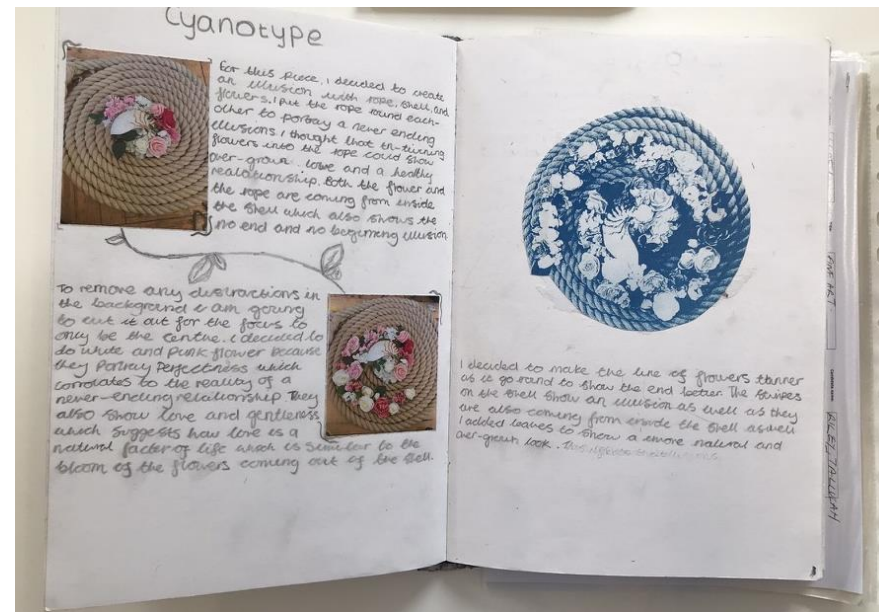 Cyanotype
For this piece, I decided to create
an illusion with rope, shell, and
flowers. I put the rope round each-
other to portray a never ending
illusions. I thought that in-turning
flowers into the rope could show
over-grown love and a healthy
realationship. Both the flower and
the rope are coming from inside
the shell which also shows the
no end and no beginning illusion
To remove any distractions in
the background I am going
to cut it out for the focus to
only be the centre. I decided to
do white and pink flower because
they portray Perfectness which
corrolates to the reality of a
never-ending relationship. They
also show love and gentleness
which suggests how love is a
natural factor of life which is similar to the
bloom of the flowers coming out of the shell.
I decided to make the line of flowers thinner
as it go round to show the end better. The stripes
on the shell show an illusion as well as they
are also coming from inside the shell aswell
I added leaves to show a more natural and
over-grown look.
FINE ART